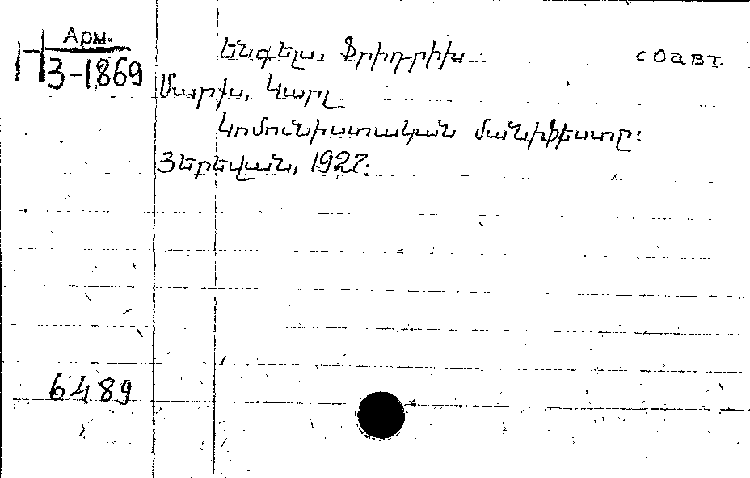 Арм.
Н 3-1869
Ենգելս, Ֆրիդրիխ соавт.
Մարքս, Կարլ
Կոմունիստական մանիֆեստը:
Յերեվան, 1927:
6489